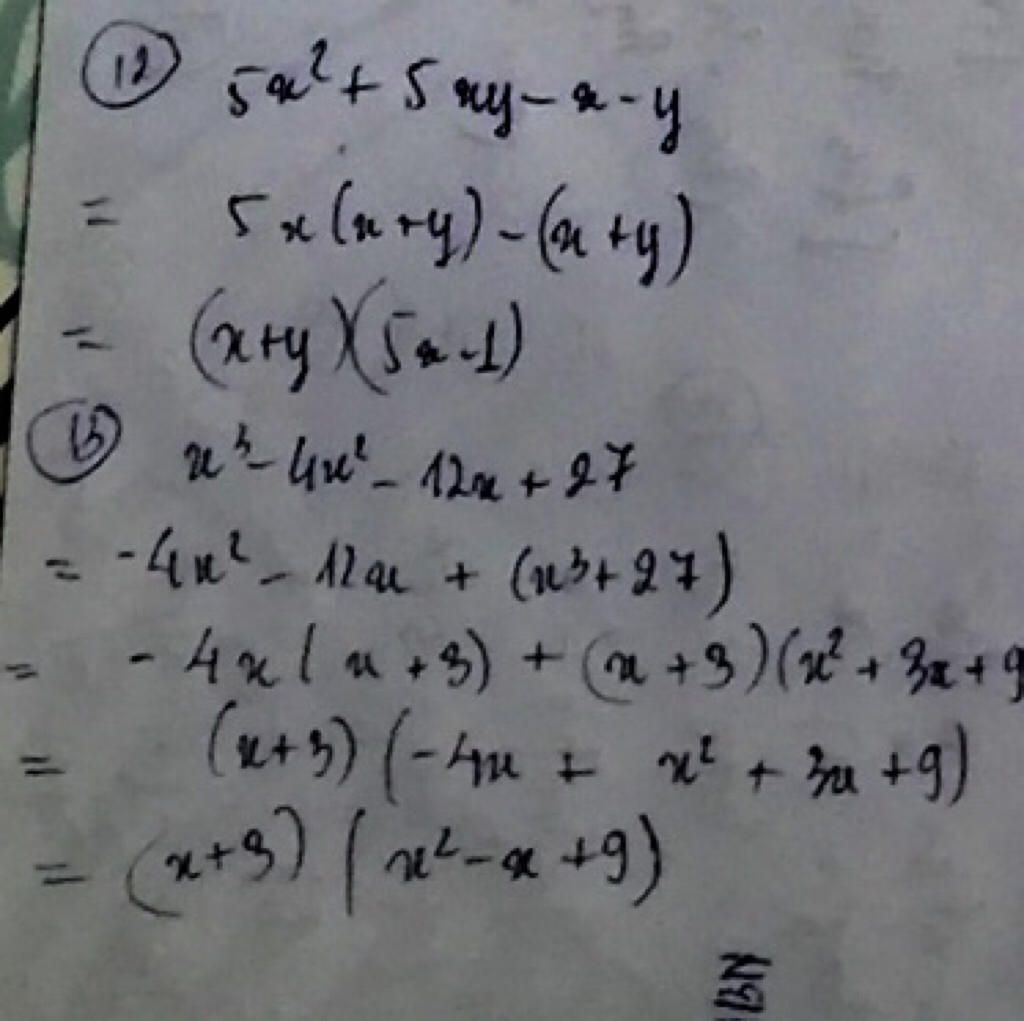 (12) 5x² + 5xy - x - y
= 5x(x+y) - (x+y)
= (x+y)(5x-1)
(13) x³ - 4x² - 12x + 27
= -4x² - 12x + (x³ + 27)
= -4x(x+3) + (x+3)(x² + 3x + 9
= (x+3)(-4x + x² + 3x + 9)
= (x+3)(x² - x + 9)